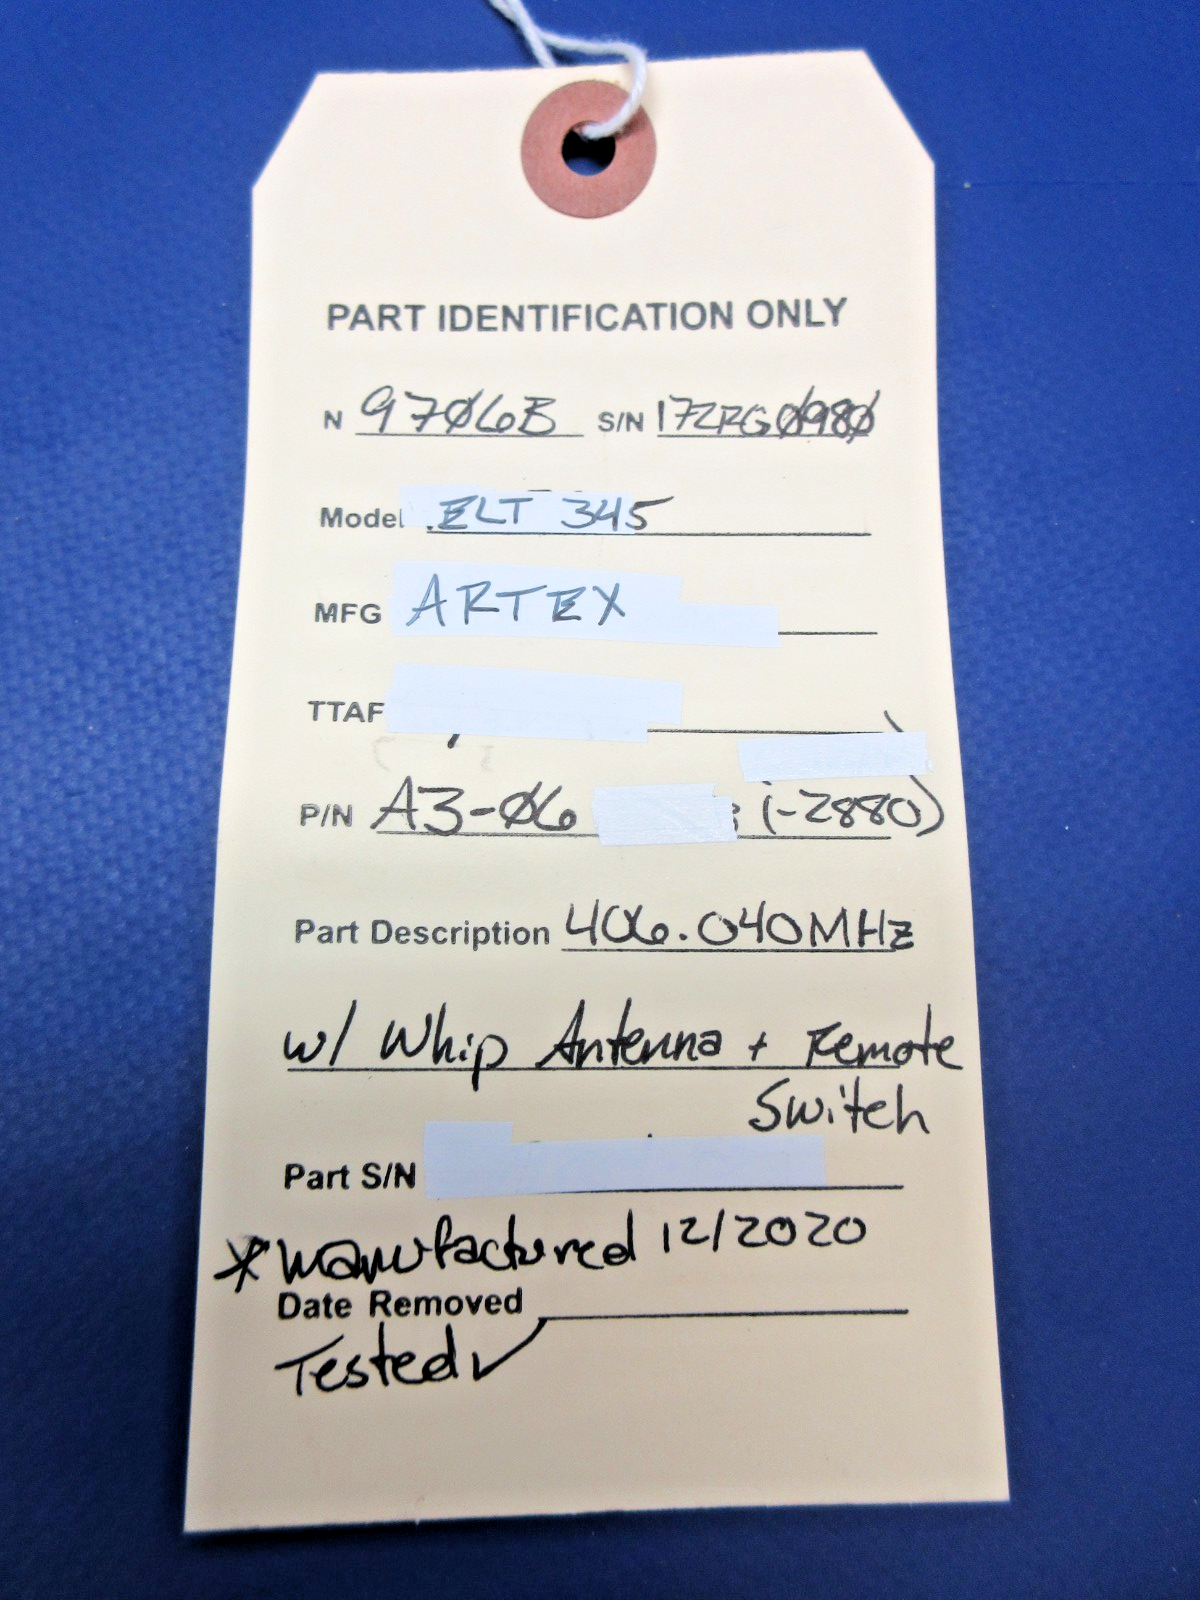 PART IDENTIFICATION ONLY
N 9706B S/N 172RG0980
Model ELT 345
MFG ARTEX
TTAF
P/N A3-06 (-2880)
Part Description 406.040MHz
w/ Whip Antenna + Remote
Switch
Part S/N
* Manufactured 12/2020
Date Removed
Tested✓